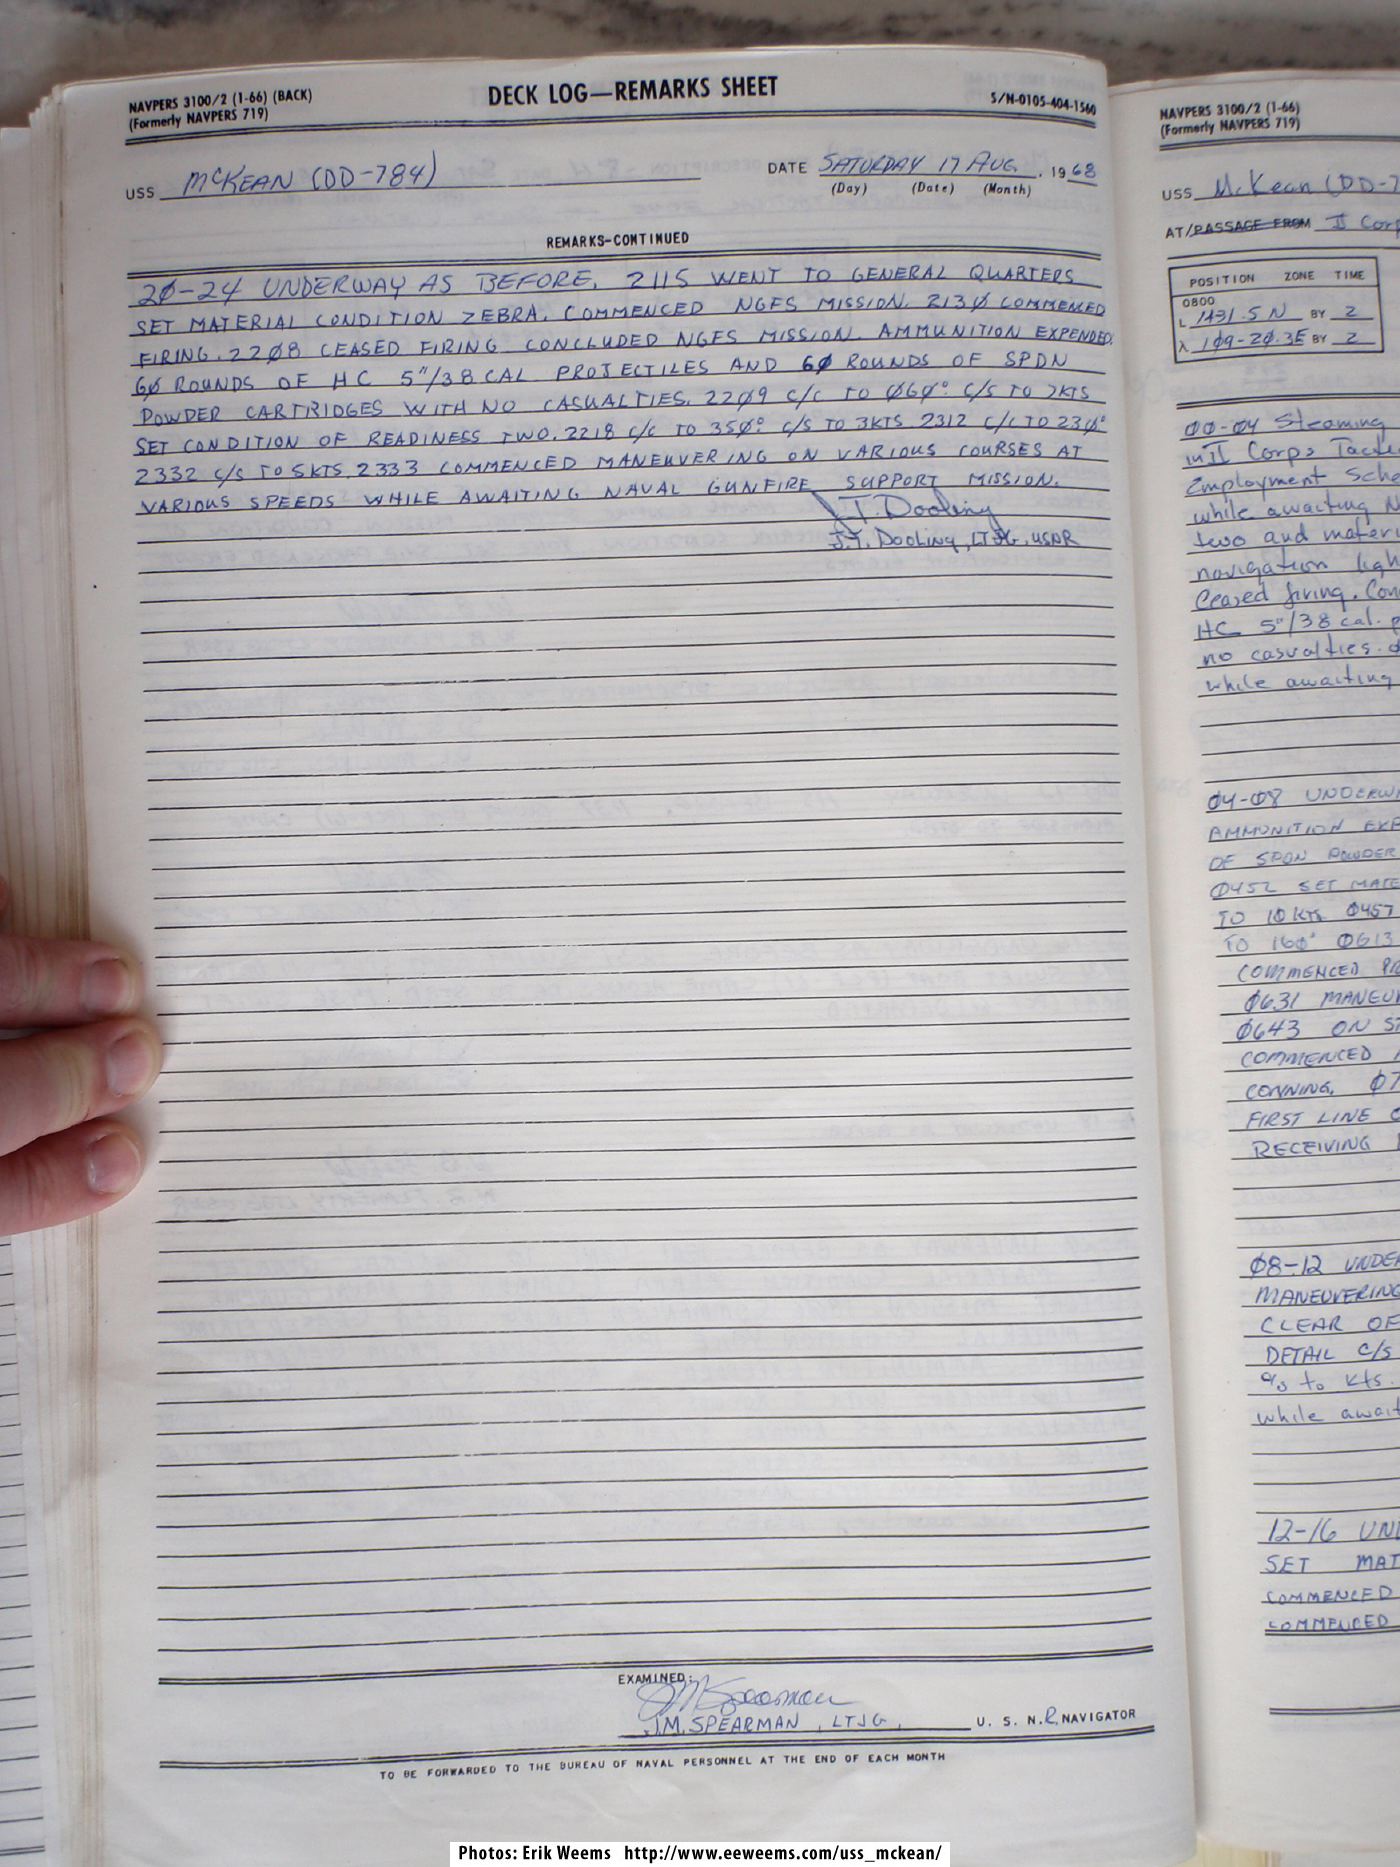 NAVPERS 3100/2 (1-66) (BACK)
(Formerly NAVPERS 719)
DECK LOG—REMARKS SHEET
S/N-0105-404-1560
USS McKEAN (DD-784)
DATE SATURDAY 17 AUG. 1968
(Day) (Date) (Month)
REMARKS-CONTINUED
2Ø-24 UNDERWAY AS BEFORE. 2115 WENT TO GENERAL QUARTERS
SET MATERIAL CONDITION ZEBRA. COMMENCED NGFS MISSION. 213Ø COMMENCED
FIRING. 22Ø8 CEASED FIRING CONCLUDED NGFS MISSION. AMMUNITION EXPENDED.
6Ø ROUNDS OF HC 5"/38 CAL PROJECTILES AND 6Ø ROUNDS OF SPDN
POWDER CARTRIDGES WITH NO CASUALTIES. 22Ø9 C/C TO Ø6Ø° C/S TO 7KTS
SET CONDITION OF READINESS TWO. 2218 C/C TO 35Ø° C/S TO 3KTS 2312 C/C TO 23Ø°
2332 C/S TO 5KTS. 2333 COMMENCED MANEUVERING ON VARIOUS COURSES AT
VARIOUS SPEEDS WHILE AWAITING NAVAL GUNFIRE SUPPORT MISSION.
J.T. Dooling
J.T. DOOLING, LTJG, USNR
EXAMINED:
JM Spearman
J.M. SPEARMAN, LTJG, U. S. N. R. NAVIGATOR
TO BE FORWARDED TO THE BUREAU OF NAVAL PERSONNEL AT THE END OF EACH MONTH
NAVPERS 3100/2 (1-66)
(Formerly NAVPERS 719)
USS McKean (DD-7
AT/PASSAGE FROM II Corp
POSITION ZONE TIME
0800
L 1431.5 N BY 2
λ 1Ø9-2Ø.3E BY 2
ØØ-Ø4 Steaming
in II Corps Tacti
Employment Sche
while awaiting N
two and materi
navigation ligh
Ceased firing. Con
HC 5"/38 cal. p
no casualties.
while awaiting
Ø4-Ø8 UNDERW
AMMUNITION EXP
OF SPDN POWDER
Ø452 SET MATE
TO 10 KTS Ø457
TO 160° Ø613
COMMENCED PR
Ø631 MANEUV
Ø643 ON ST
COMMENCED
CONNING. Ø7
FIRST LINE
RECEIVING
Ø8-12 UNDE
MANEUVERING
CLEAR OF
DETAIL C/S
c/s to kts.
while await
12-16 UND
SET MAT
COMMENCED
COMMENCED
Photos: Erik Weems http://www.eeweems.com/uss_mckean/